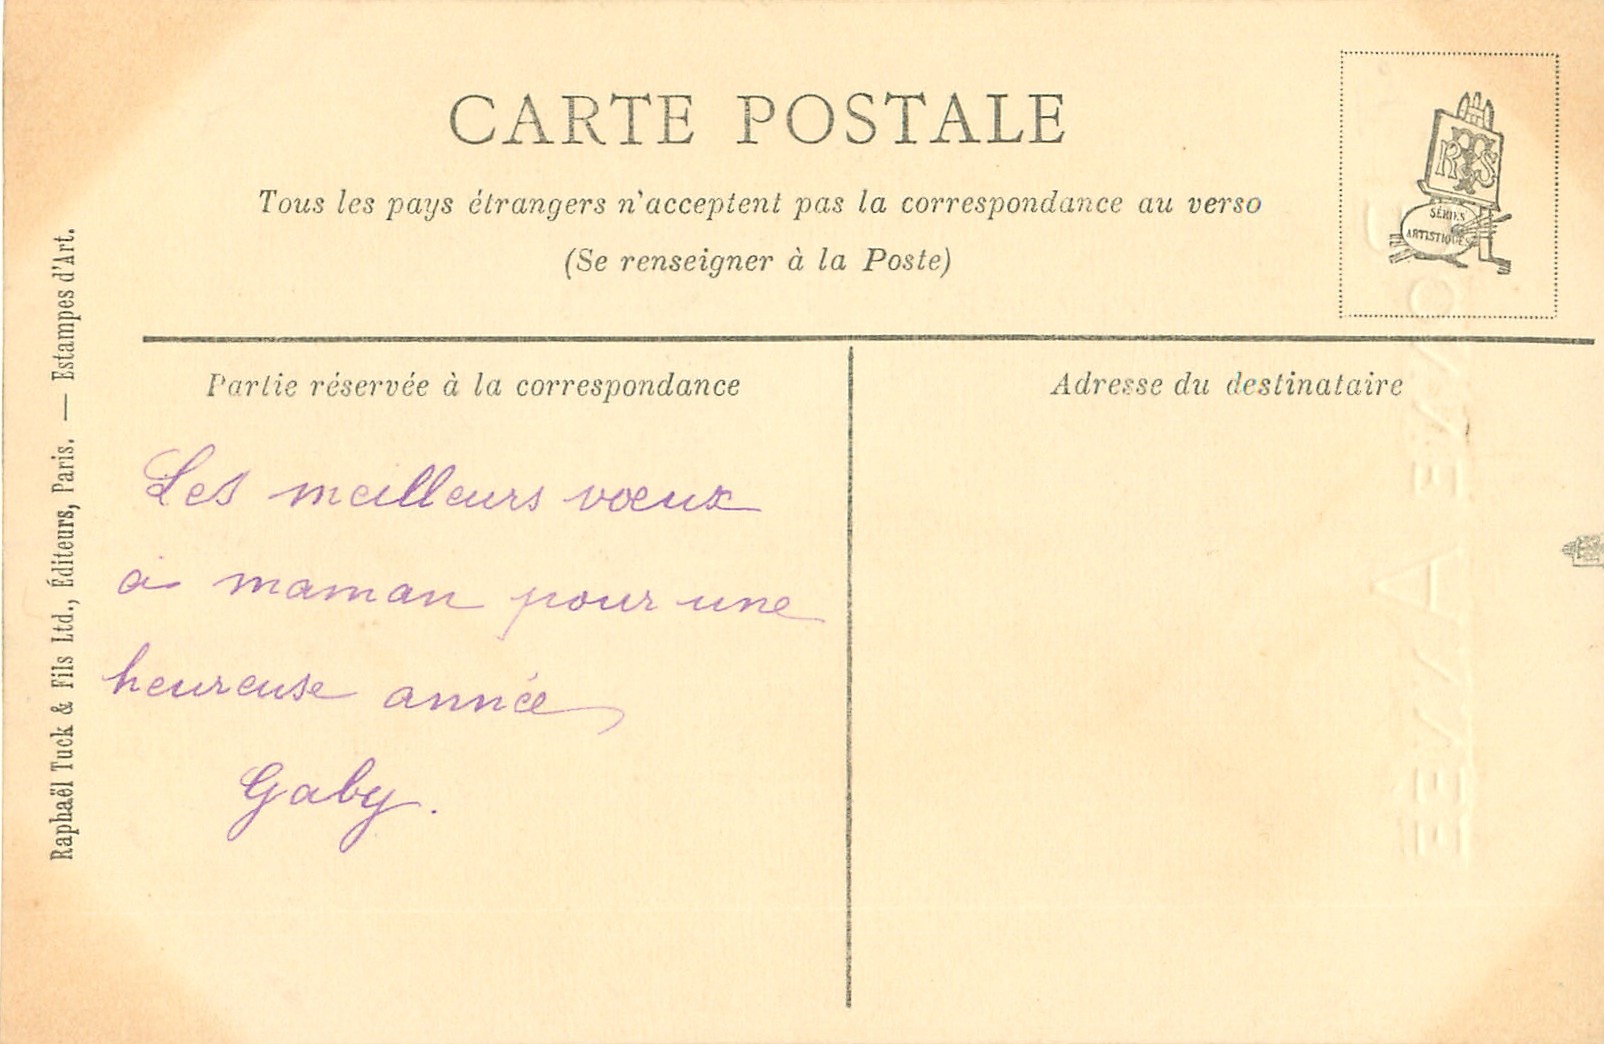 CARTE POSTALE
Tous les pays étrangers n'acceptent pas la correspondance au verso
(Se renseigner à la Poste)
RTS
SÉRIES
ARTISTIQUES
Raphaël Tuck & Fils Ltd., Éditeurs, Paris. — Estampes d'Art.
Partie réservée à la correspondance
Les meilleurs vœux
à maman pour une
heureuse année
Gaby.
Adresse du destinataire